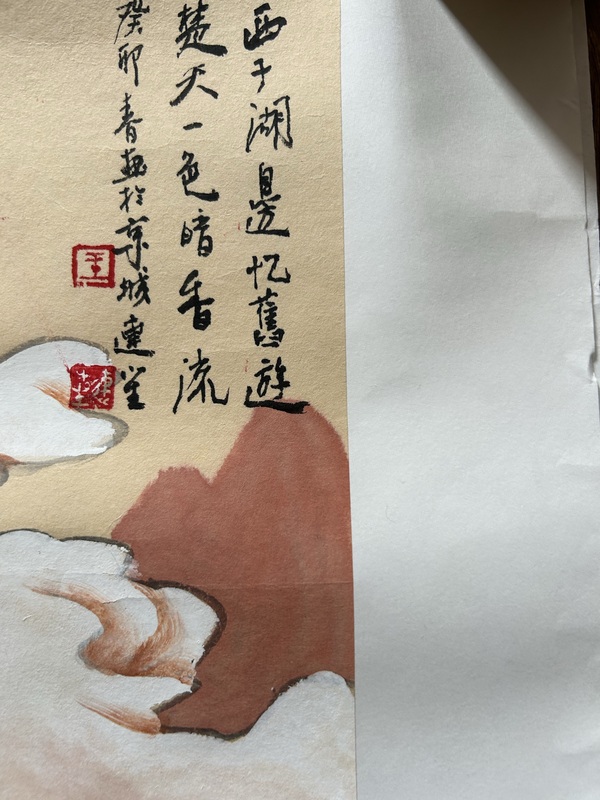 西子湖邊忆舊遊
楚天一色暗香流
癸卯春畫於京城
王